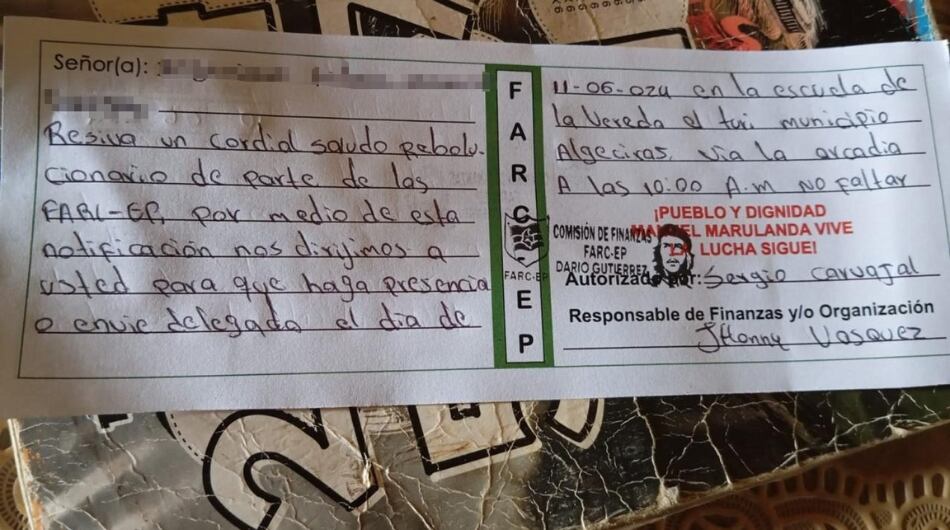 Señor(a):
Resiva un cordial saludo rebolu-
cionario de parte de las
FARC-EP, por medio de esta
notificación nos dirijimos a
usted para que haga presencia
o envie delegado el día de
F
A
R
C
-
E
P
FARC-EP
11-06-024 en la escuela de
la Vereda el turi municipio
Algeciras, via la arcadia
A las 10:00 A.m NO Faltar
¡PUEBLO Y DIGNIDAD
MANUEL MARULANDA VIVE
LA LUCHA SIGUE!
COMISIÓN DE FINANZAS
FARC-EP
DARIO GUTIERREZ
Autorizado por: Sergio carvajal
Responsable de Finanzas y/o Organización
JHonny Vasquez